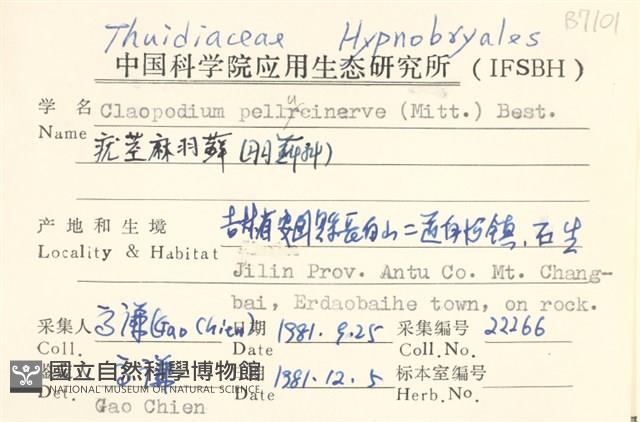 B7101
Thuidiaceae Hypnobryales
中国科学院应用生态研究所 (IFSBH)
学名 Claopodium pellucinerve (Mitt.) Best.
Name 疣茎麻羽藓 (羽藓科)
产地和生境 吉林省安图縣長白山二道白河镇,石生
Locality & Habitat Jilin Prov. Antu Co. Mt. Chang-
bai, Erdaobaihe town, on rock.
采集人 高谦(Gao Chien) 日期 1981.9.25 采集编号 22266
Coll. Date Coll.No.
高谦 日期 1981.12.5 标本室编号
Det. Gao Chien Date Herb.No.
國立自然科學博物館
NATIONAL MUSEUM OF NATURAL SCIENCE